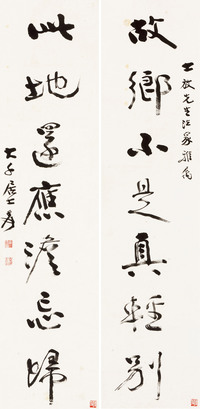 先生法家雅
故鄉不是真輕別
此地還應澹忘歸
大千居士爰